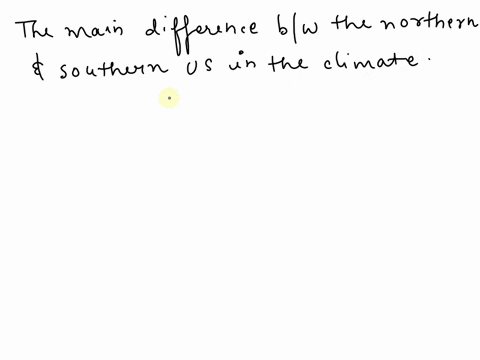 The main difference b/w the northern
& southern US in the climate.